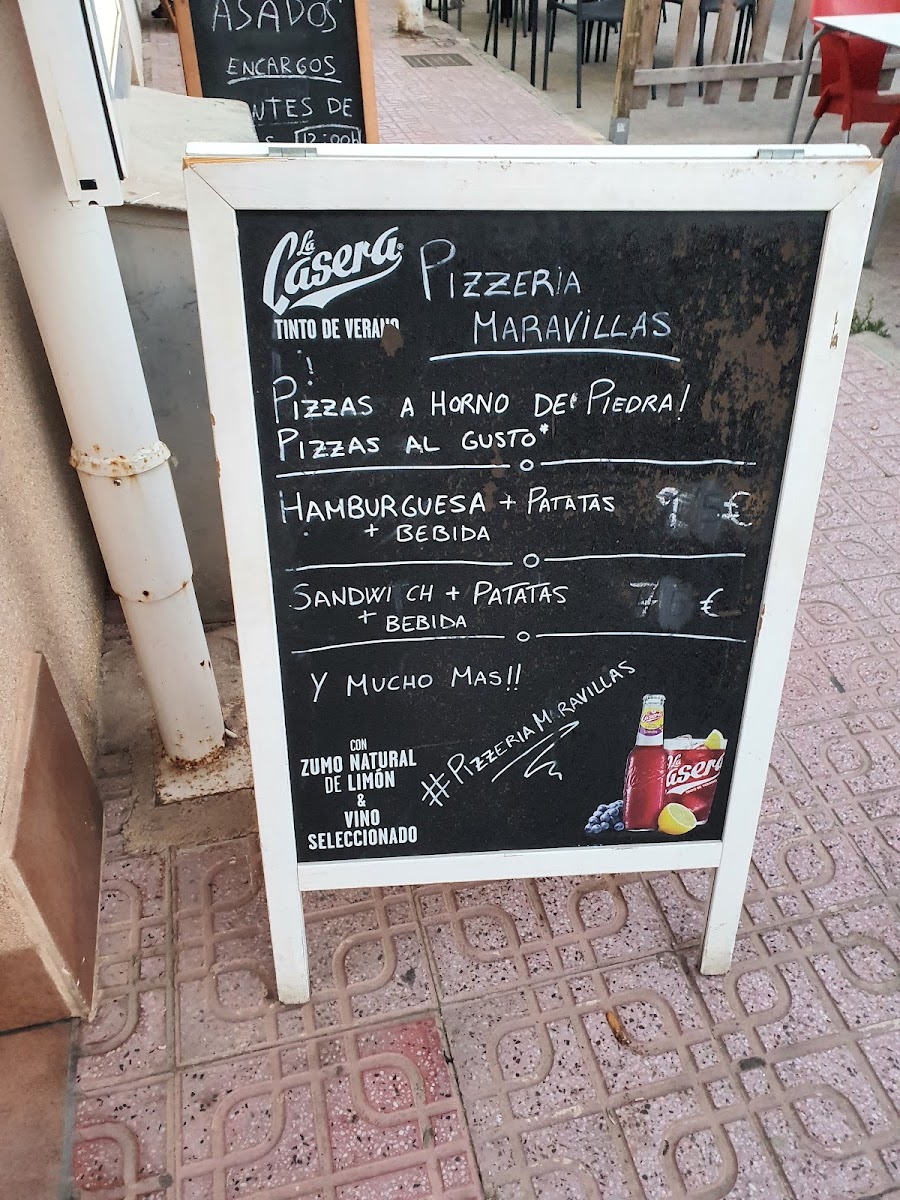 ASADOS
ENCARGOS
ANTES DE
12:00H
La Casera®
TINTO DE VERANO
PIZZERIA
MARAVILLAS
PIZZAS A HORNO DE PIEDRA!
PIZZAS AL GUSTO*
HAMBURGUESA + PATATAS
+ BEBIDA
€
SANDWICH + PATATAS
+ BEBIDA
€
Y MUCHO MAS!!
#PIZZERIAMARAVILLAS
CON
ZUMO NATURAL
DE LIMÓN
&
VINO
SELECCIONADO
La Casera